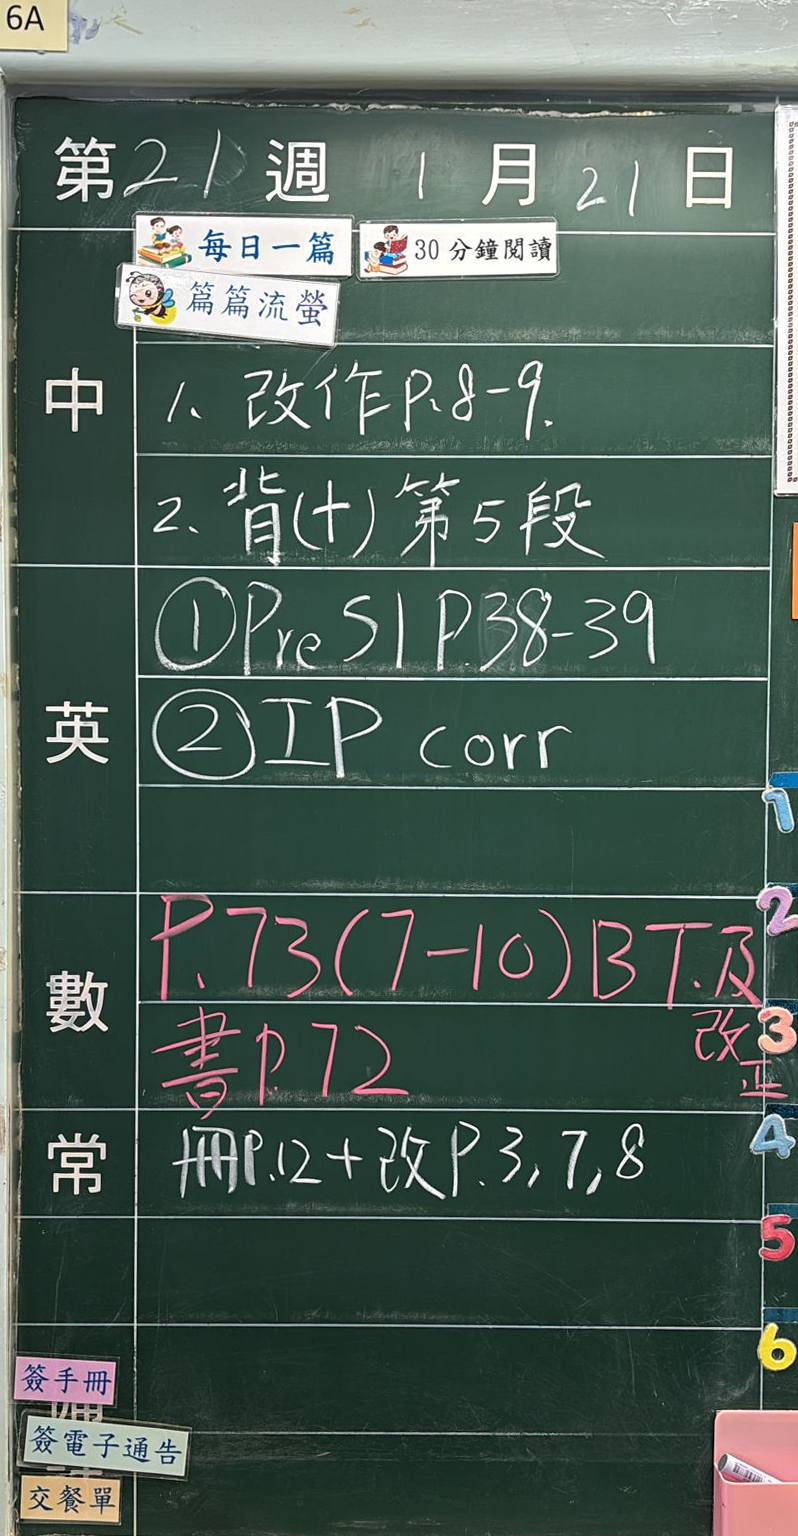 6A
第21週 1月21日
每日一篇 30分鐘閱讀
篇篇流螢
中
1. 改作P.8-9.
2. 背(十)第5段
英
①Pre S1 P.38-39
②IP corr
數
P.73(7-10)BT.及
改正
書P.72
常
冊P.12+改P.3,7,8
簽手冊
簽電子通告
交餐單
1
2
3
4
5
6